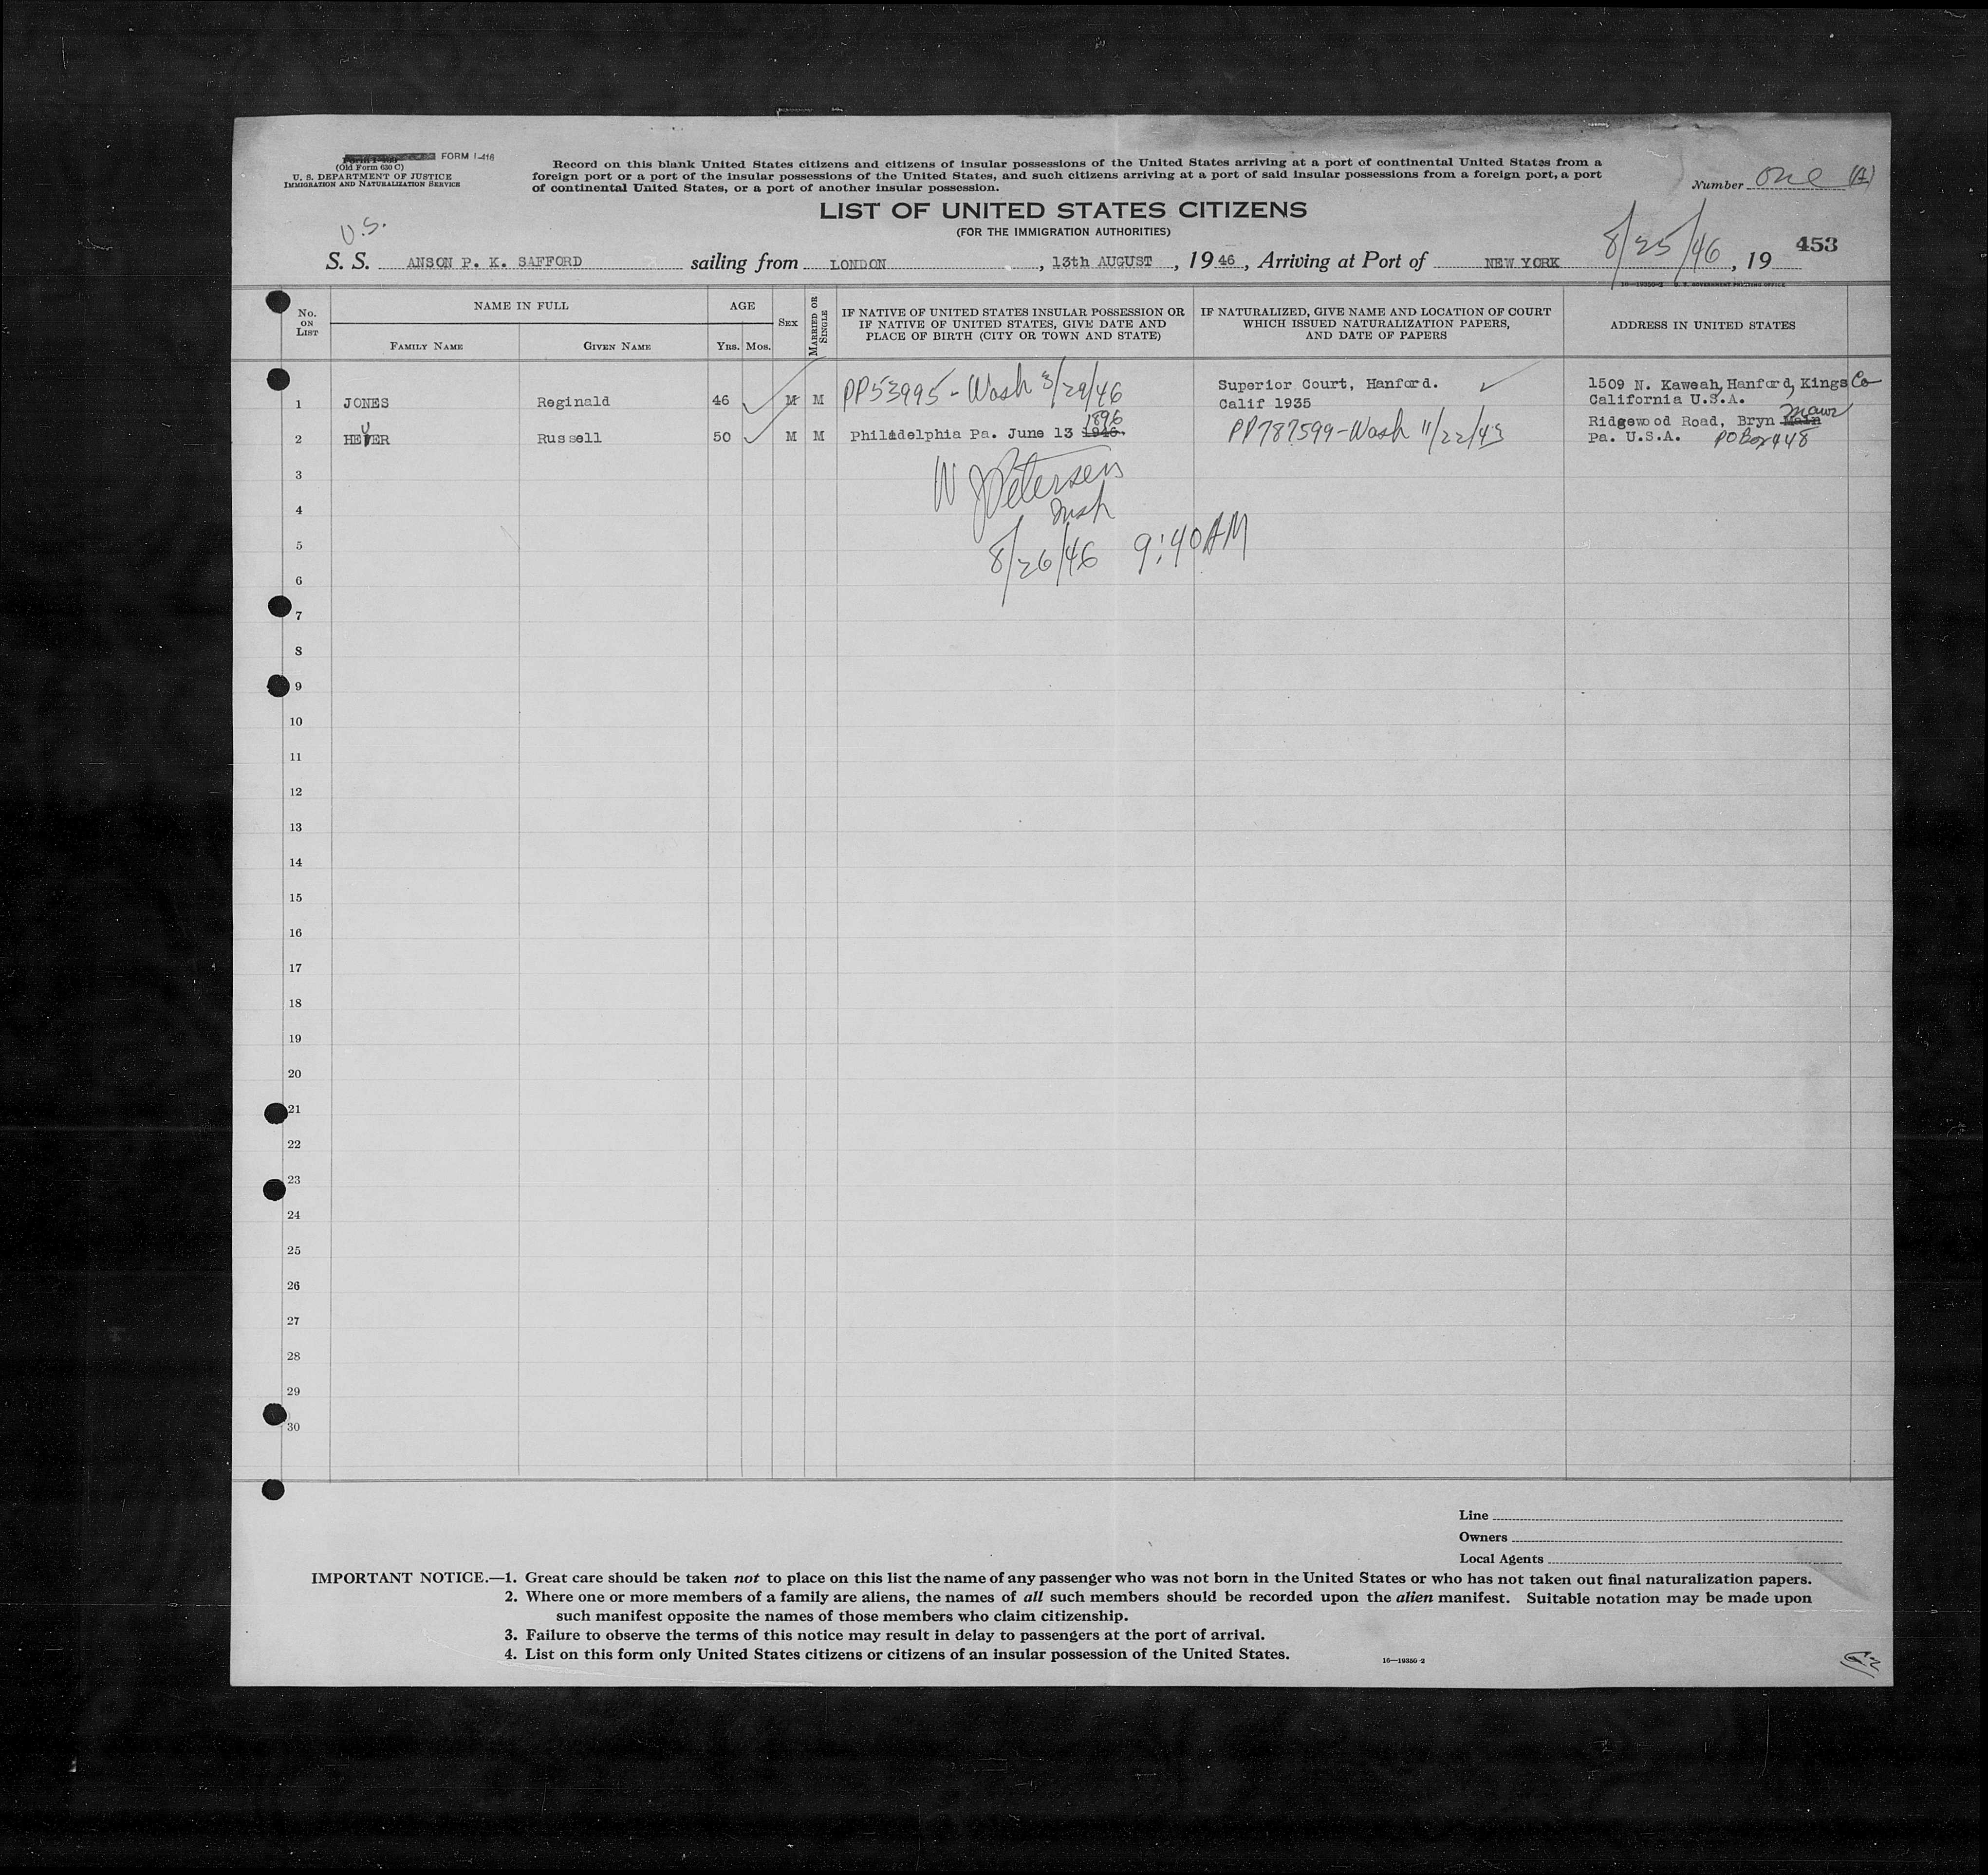 FORM I-416
(Old Form 630 C)
U. S. DEPARTMENT OF JUSTICE
IMMIGRATION AND NATURALIZATION SERVICE
Record on this blank United States citizens and citizens of insular possessions of the United States arriving at a port of continental United States from a
foreign port or a port of the insular possessions of the United States, and such citizens arriving at a port of said insular possessions from a foreign port, a port
of continental United States, or a port of another insular possession.
Number One (1)
LIST OF UNITED STATES CITIZENS
(FOR THE IMMIGRATION AUTHORITIES)
U.S.
453
S. S. ANSON P. K. SAFFORD sailing from LONDON, 13th AUGUST, 1946, Arriving at Port of NEW YORK 8/25/46, 19
16—19350-2 U. S. GOVERNMENT PRINTING OFFICE
No. ON LIST
NAME IN FULL
FAMILY NAME
GIVEN NAME
AGE
YRS. MOS.
SEX
MARRIED OR SINGLE
IF NATIVE OF UNITED STATES INSULAR POSSESSION OR
IF NATIVE OF UNITED STATES, GIVE DATE AND
PLACE OF BIRTH (CITY OR TOWN AND STATE)
IF NATURALIZED, GIVE NAME AND LOCATION OF COURT
WHICH ISSUED NATURALIZATION PAPERS,
AND DATE OF PAPERS
ADDRESS IN UNITED STATES
1 JONES Reginald 46 M M PP53995 - Wash 3/29/46 Superior Court, Hanford. Calif 1935 1509 N. Kaweah, Hanford, Kings Co California U.S.A.
2 HEYER Russell 50 M M Philadelphia Pa. June 13 1946. 1896 PP787599 - Wash 11/22/43 Ridgewood Road, Bryn Main Mawr Pa. U.S.A. PO Box 448
3
W J Petersen
4
Insp
5
8/26/46 9:40 AM
6
7
8
9
10
11
12
13
14
15
16
17
18
19
20
21
22
23
24
25
26
27
28
29
30
Line
Owners
Local Agents
IMPORTANT NOTICE.—1. Great care should be taken not to place on this list the name of any passenger who was not born in the United States or who has not taken out final naturalization papers.
2. Where one or more members of a family are aliens, the names of all such members should be recorded upon the alien manifest. Suitable notation may be made upon
such manifest opposite the names of those members who claim citizenship.
3. Failure to observe the terms of this notice may result in delay to passengers at the port of arrival.
4. List on this form only United States citizens or citizens of an insular possession of the United States.
16—19350-2